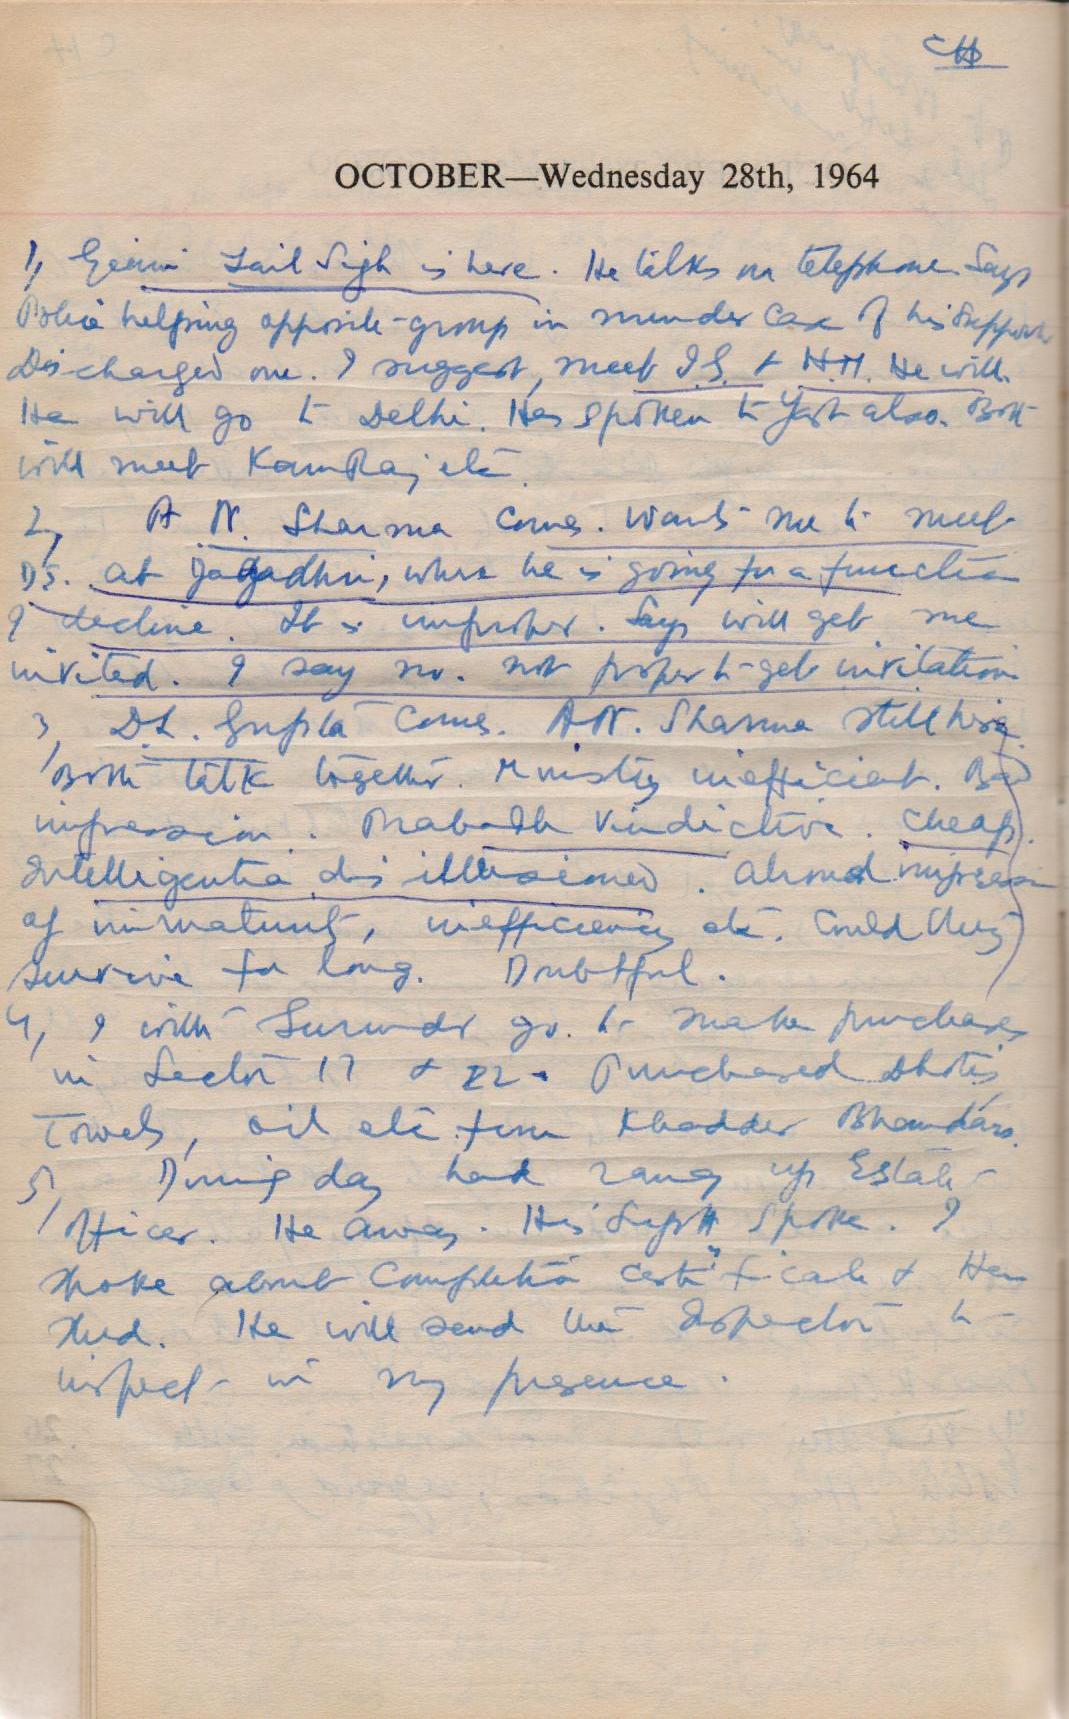 CH
OCTOBER—Wednesday 28th, 1964
1, Geani Zail Sigh is here. He talks on telephone. Says
Police helping opposite-group in murder case of his supporter
Discharged one. I suggest, meet I.G. + H.M. He will.
He will go to Delhi. Has spoken to Yash also. Both
will meet KamRaj etc.
2, A N. Sharma comes. Wants me to meet
DS. at Jagadhri, where he is going for a function
I decline. It is improper. Says will get me
invited. I say no. not proper to get invitation
3, D.L. Gupta comes. A.N. Sharma still here.
Both talk together. Ministry inefficient. Bad
impression. Prabodh vindictive. Cheap.
Intelligentia disillusioned. Abroad impression
of immaturity, inefficiency etc. Could they
survive for long. Doubtful.
4, I with Surinder go to make purchases
in Sector 17 & 22. Purchased Dhotis,
Towels, oil etc from Khadder Bhandars.
5, During day had rang up Estate
Officer. He away. His Supdt spoke. I
spoke about completion certificate &
shed. He will send the Inspector to
inspect in my presence.